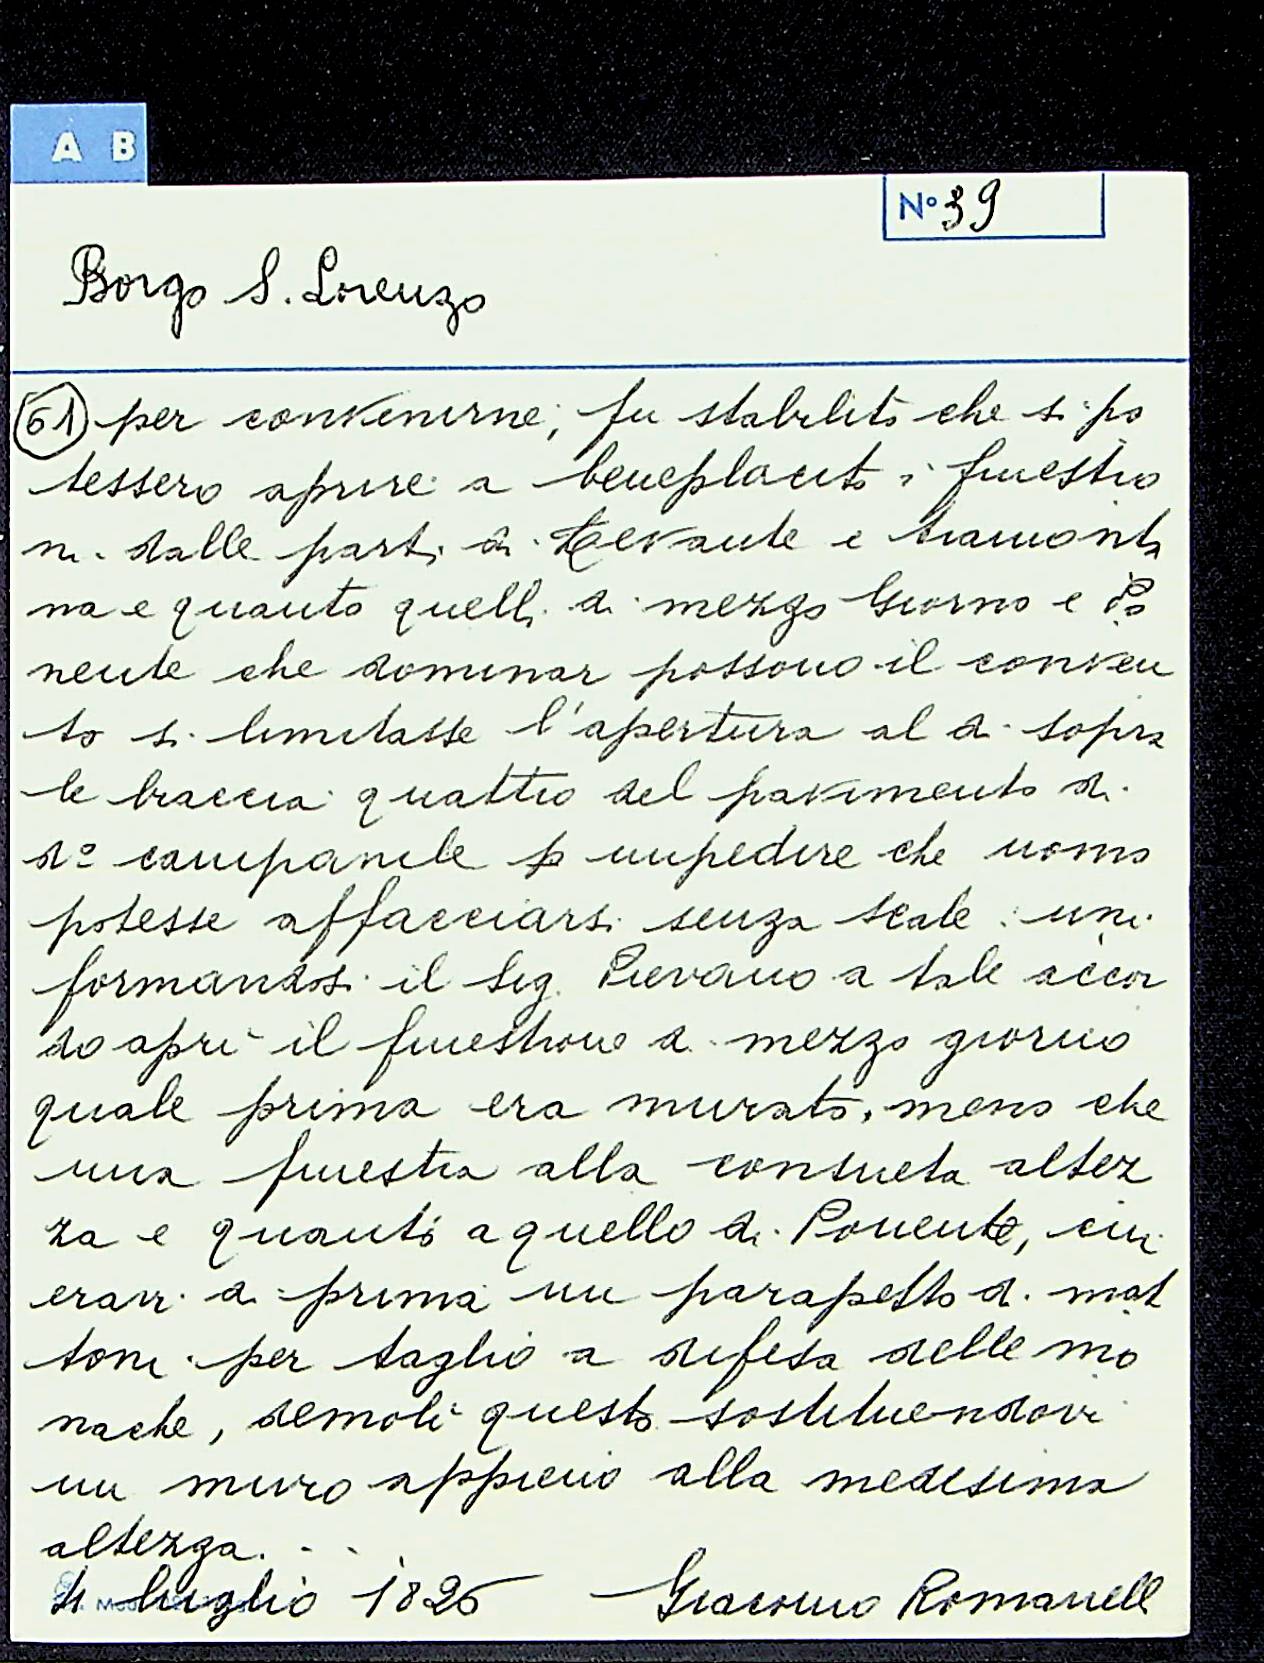 A B
N° 39
Borgo S. Lorenzo
61 per convenirne, fu stabilito che si po
tessero aprire a beneplacito i finestro
ni dalle parti di Levante e tramonta
na e quanto quelli di mezzo Giorno e Po
nente che dominar possono il conven
to si limitasse l'apertura al di sopra
le braccia quattro del pavimento di
do campanile p impedire che uomo
potesse affacciarsi senza scale: uni
formandosi il Sig. Pievano a tale accor
do aprì il finestrone di mezzo giorno
quale prima era murato, meno che
una finestra alla consueta altez
za e quanto a quello di Ponente, cui
eravi di prima un parapetto di mat
toni per taglio a difesa delle mo
nache, demolì questo sostituendovi
un muro appieno alla medesima
altezza. . . .
luglio 1826 Giacomo Romanelli